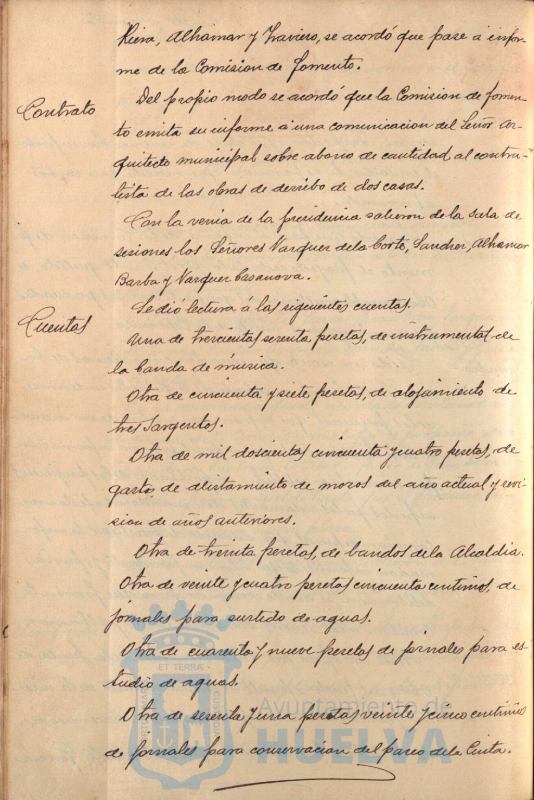 Riera, Alhamar y Traviero, se acordó que pase á infor-
me de la Comision de Fomento.
Contrato
Del propio modo se acordó que la Comision de Fomen-
to emita su informe á una comunicacion del Señor Ar-
quitecto municipal sobre abono de cantidad al contra-
tista de las obras de derribo de dos casas.
Con la venia de la presidencia salieron de la sala de
sesiones los Señores Vazquez de la Corte, Sanchez, Alhamar
Barba y Vazquez Casanova.
Cuentas
Se dió lectura á las siguientes cuentas.
Una de trescientas sesenta pesetas, de instrumental de
la banda de música.
Otra de cincuenta y siete pesetas, de alojamiento de
tres Sargentos.
Otra de mil doscientas cincuenta y cuatro pesetas, de
gastos de alistamiento de mozos del año actual y revi-
sion de años anteriores.
Otra de treinta pesetas, de bandos de la Alcaldia.
Otra de veinte y cuatro pesetas cincuenta centimos, de
jornales para surtido de aguas.
Otra de cuarenta y nueve pesetas de jornales para es-
tudio de aguas.
Otra de sesenta y una pesetas veinte y cinco centimos
de jornales para conservacion del paseo de la Cinta.
ET TERRA
Ayuntamiento de
HUELVA